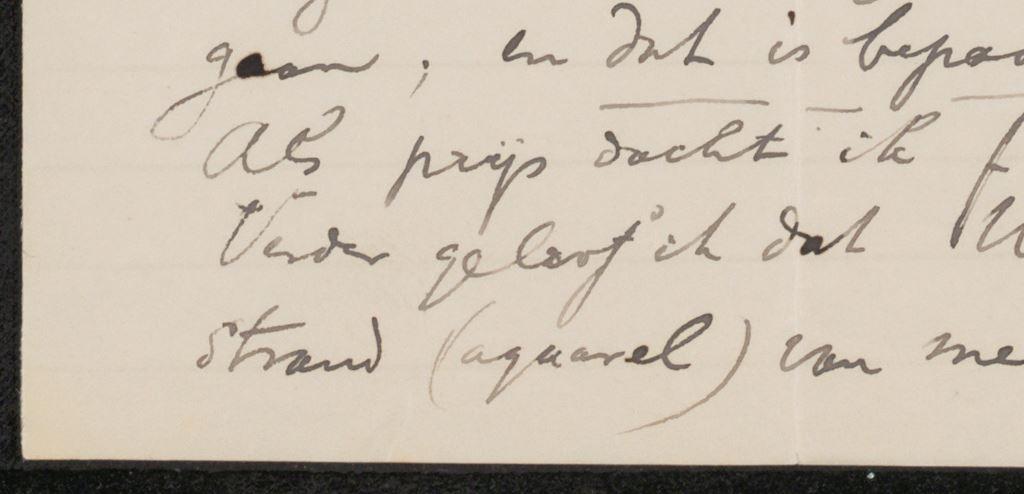 gaan; en dat is bepaa
Als prijs dacht ik f
Verder geloof ik dat U
Strand (aquarel) van me